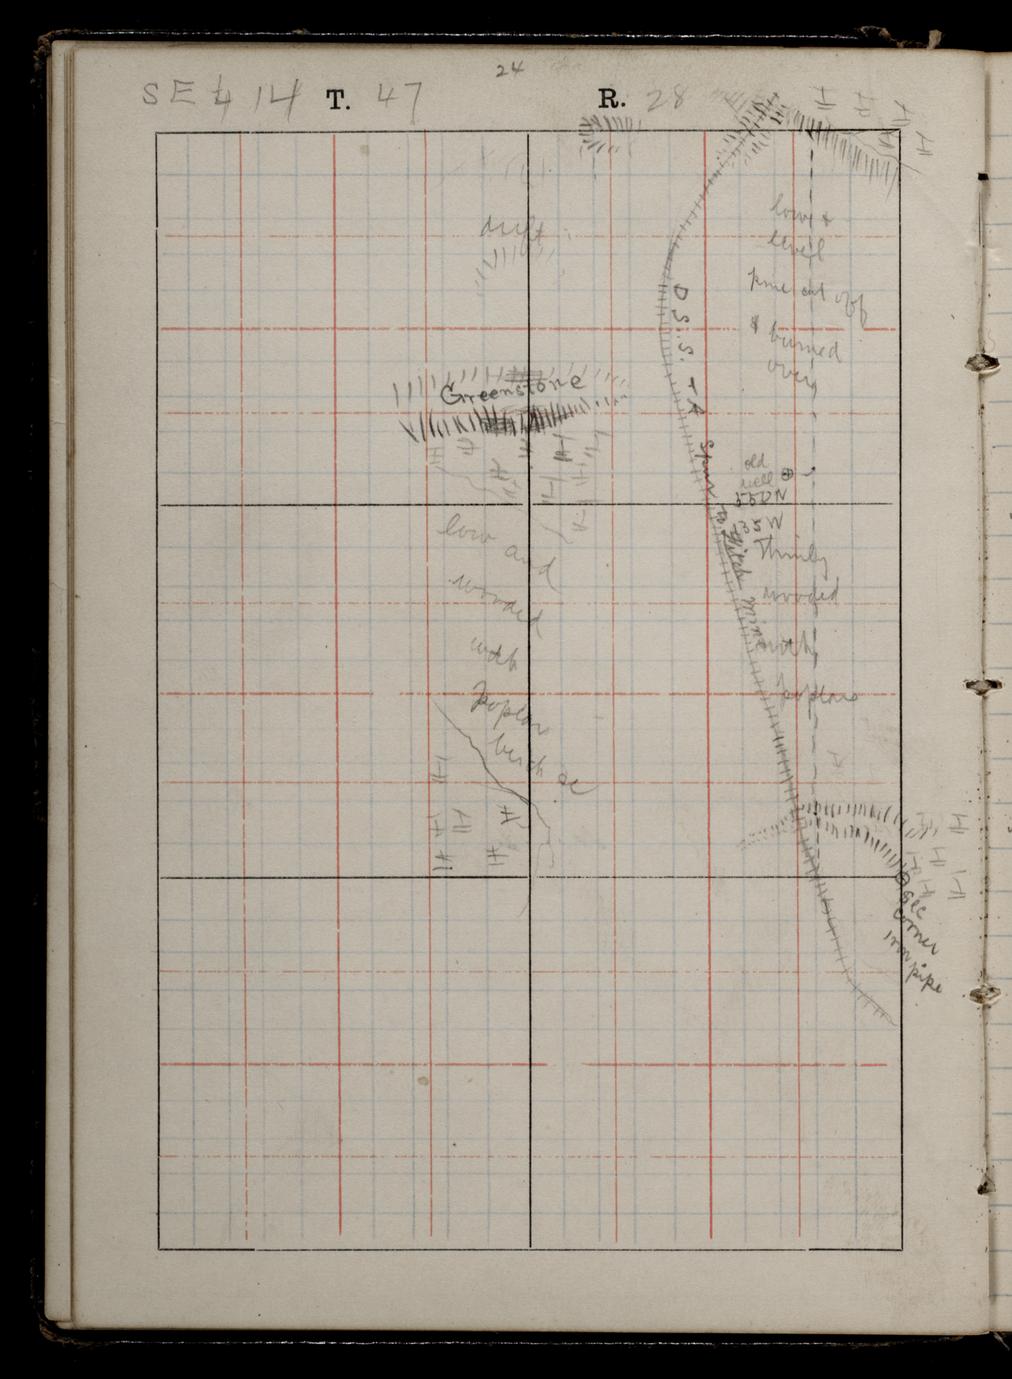 24
SE 4 14 T. 47 R. 28
drift
low &
level
pine cut off
& burned
over
D.S.S. & A
Spur to Mine
Greenstone
old
well
550N
135W
Thinly
wooded
with
poplars
low and
wooded
with
poplar
birch &c
sec
corner
iron pipe